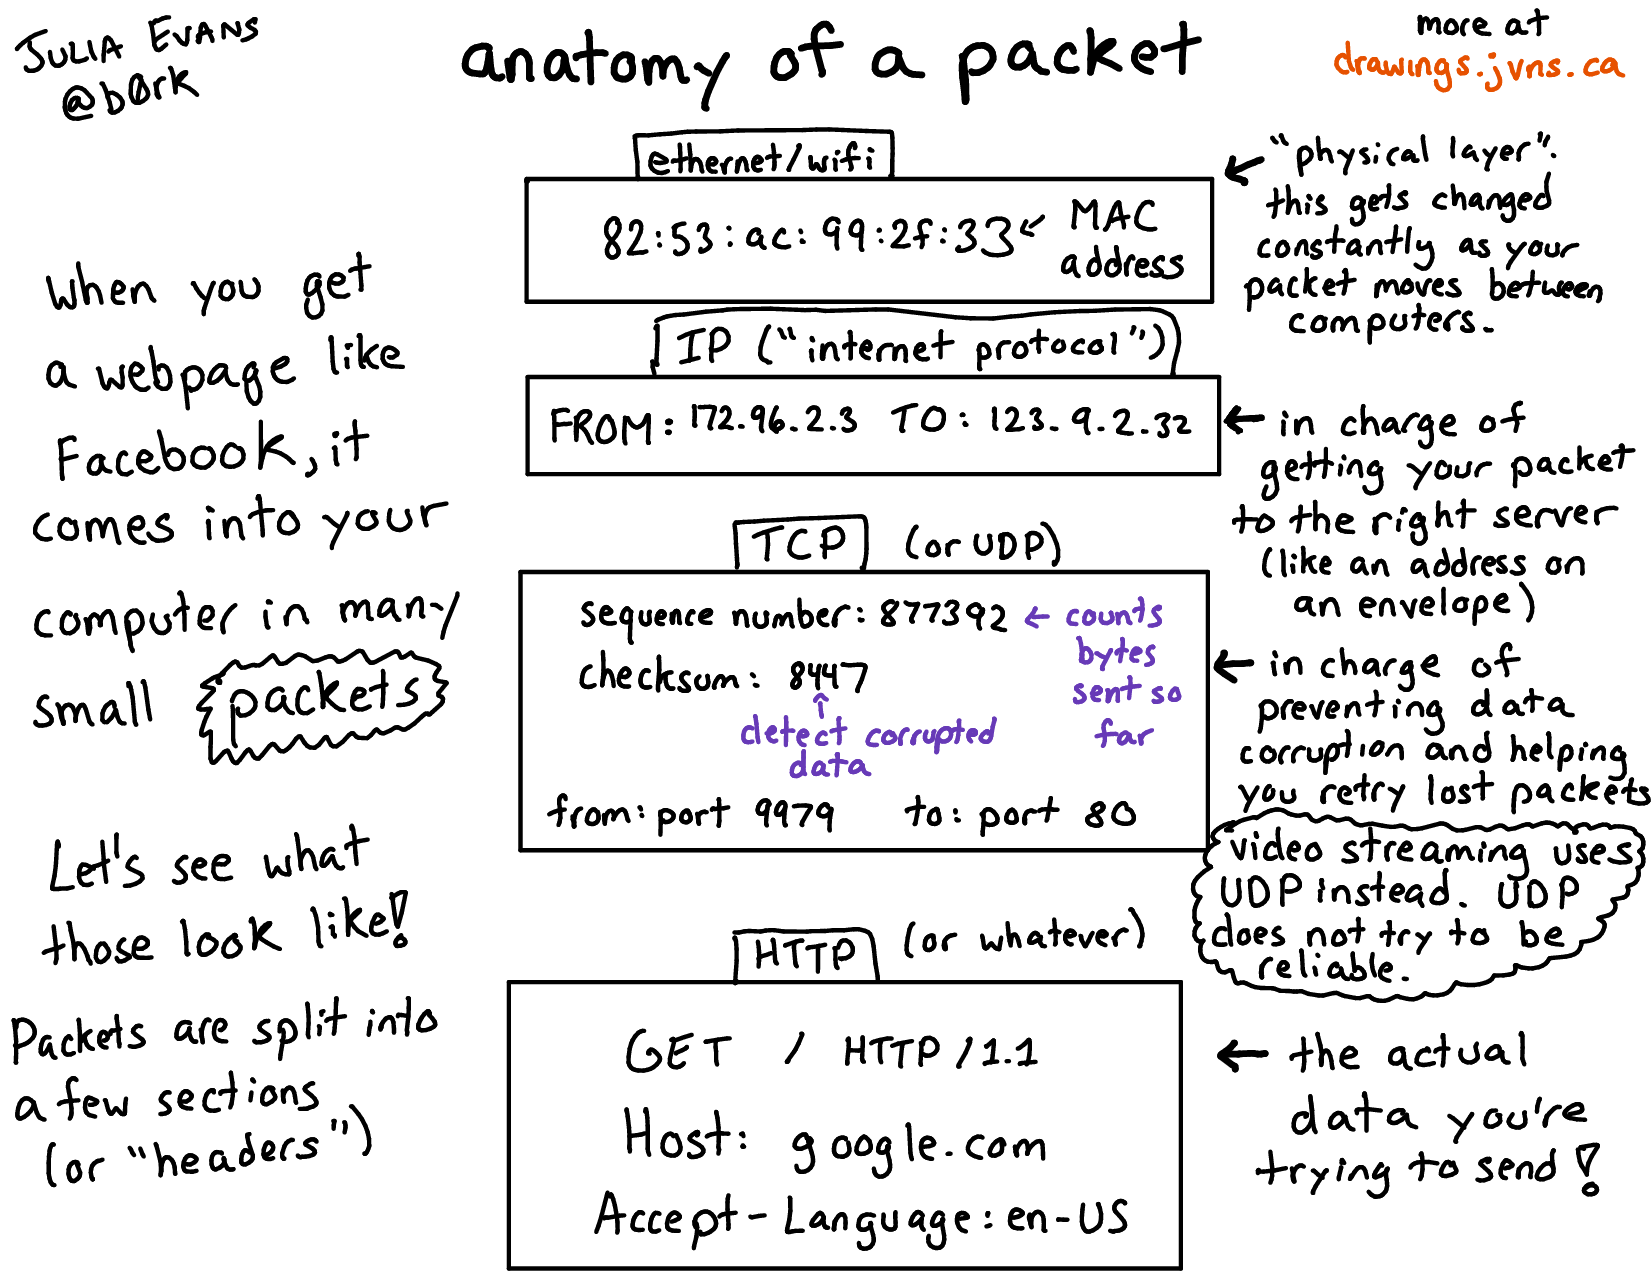 JULIA EVANS
@b0rk
anatomy of a packet
more at
drawings.jvns.ca
When you get
a webpage like
Facebook, it
comes into your
computer in many
small packets
Let's see what
those look like!
Packets are split into
a few sections
(or "headers")
ethernet/wifi
82:53:ac:99:2f:33 ← MAC
address
← "physical layer".
this gets changed
constantly as your
packet moves between
computers.
IP ("internet protocol")
FROM: 172.96.2.3 TO: 123.9.2.32
← in charge of
getting your packet
to the right server
(like an address on
an envelope)
TCP (or UDP)
sequence number: 877392 ← counts
bytes
sent so
far
checksum: 8447
↑
detect corrupted
data
from: port 9979 to: port 80
← in charge of
preventing data
corruption and helping
you retry lost packets
video streaming uses
UDP instead. UDP
does not try to be
reliable.
HTTP (or whatever)
GET / HTTP/1.1
Host: google.com
Accept-Language: en-US
← the actual
data you're
trying to send!